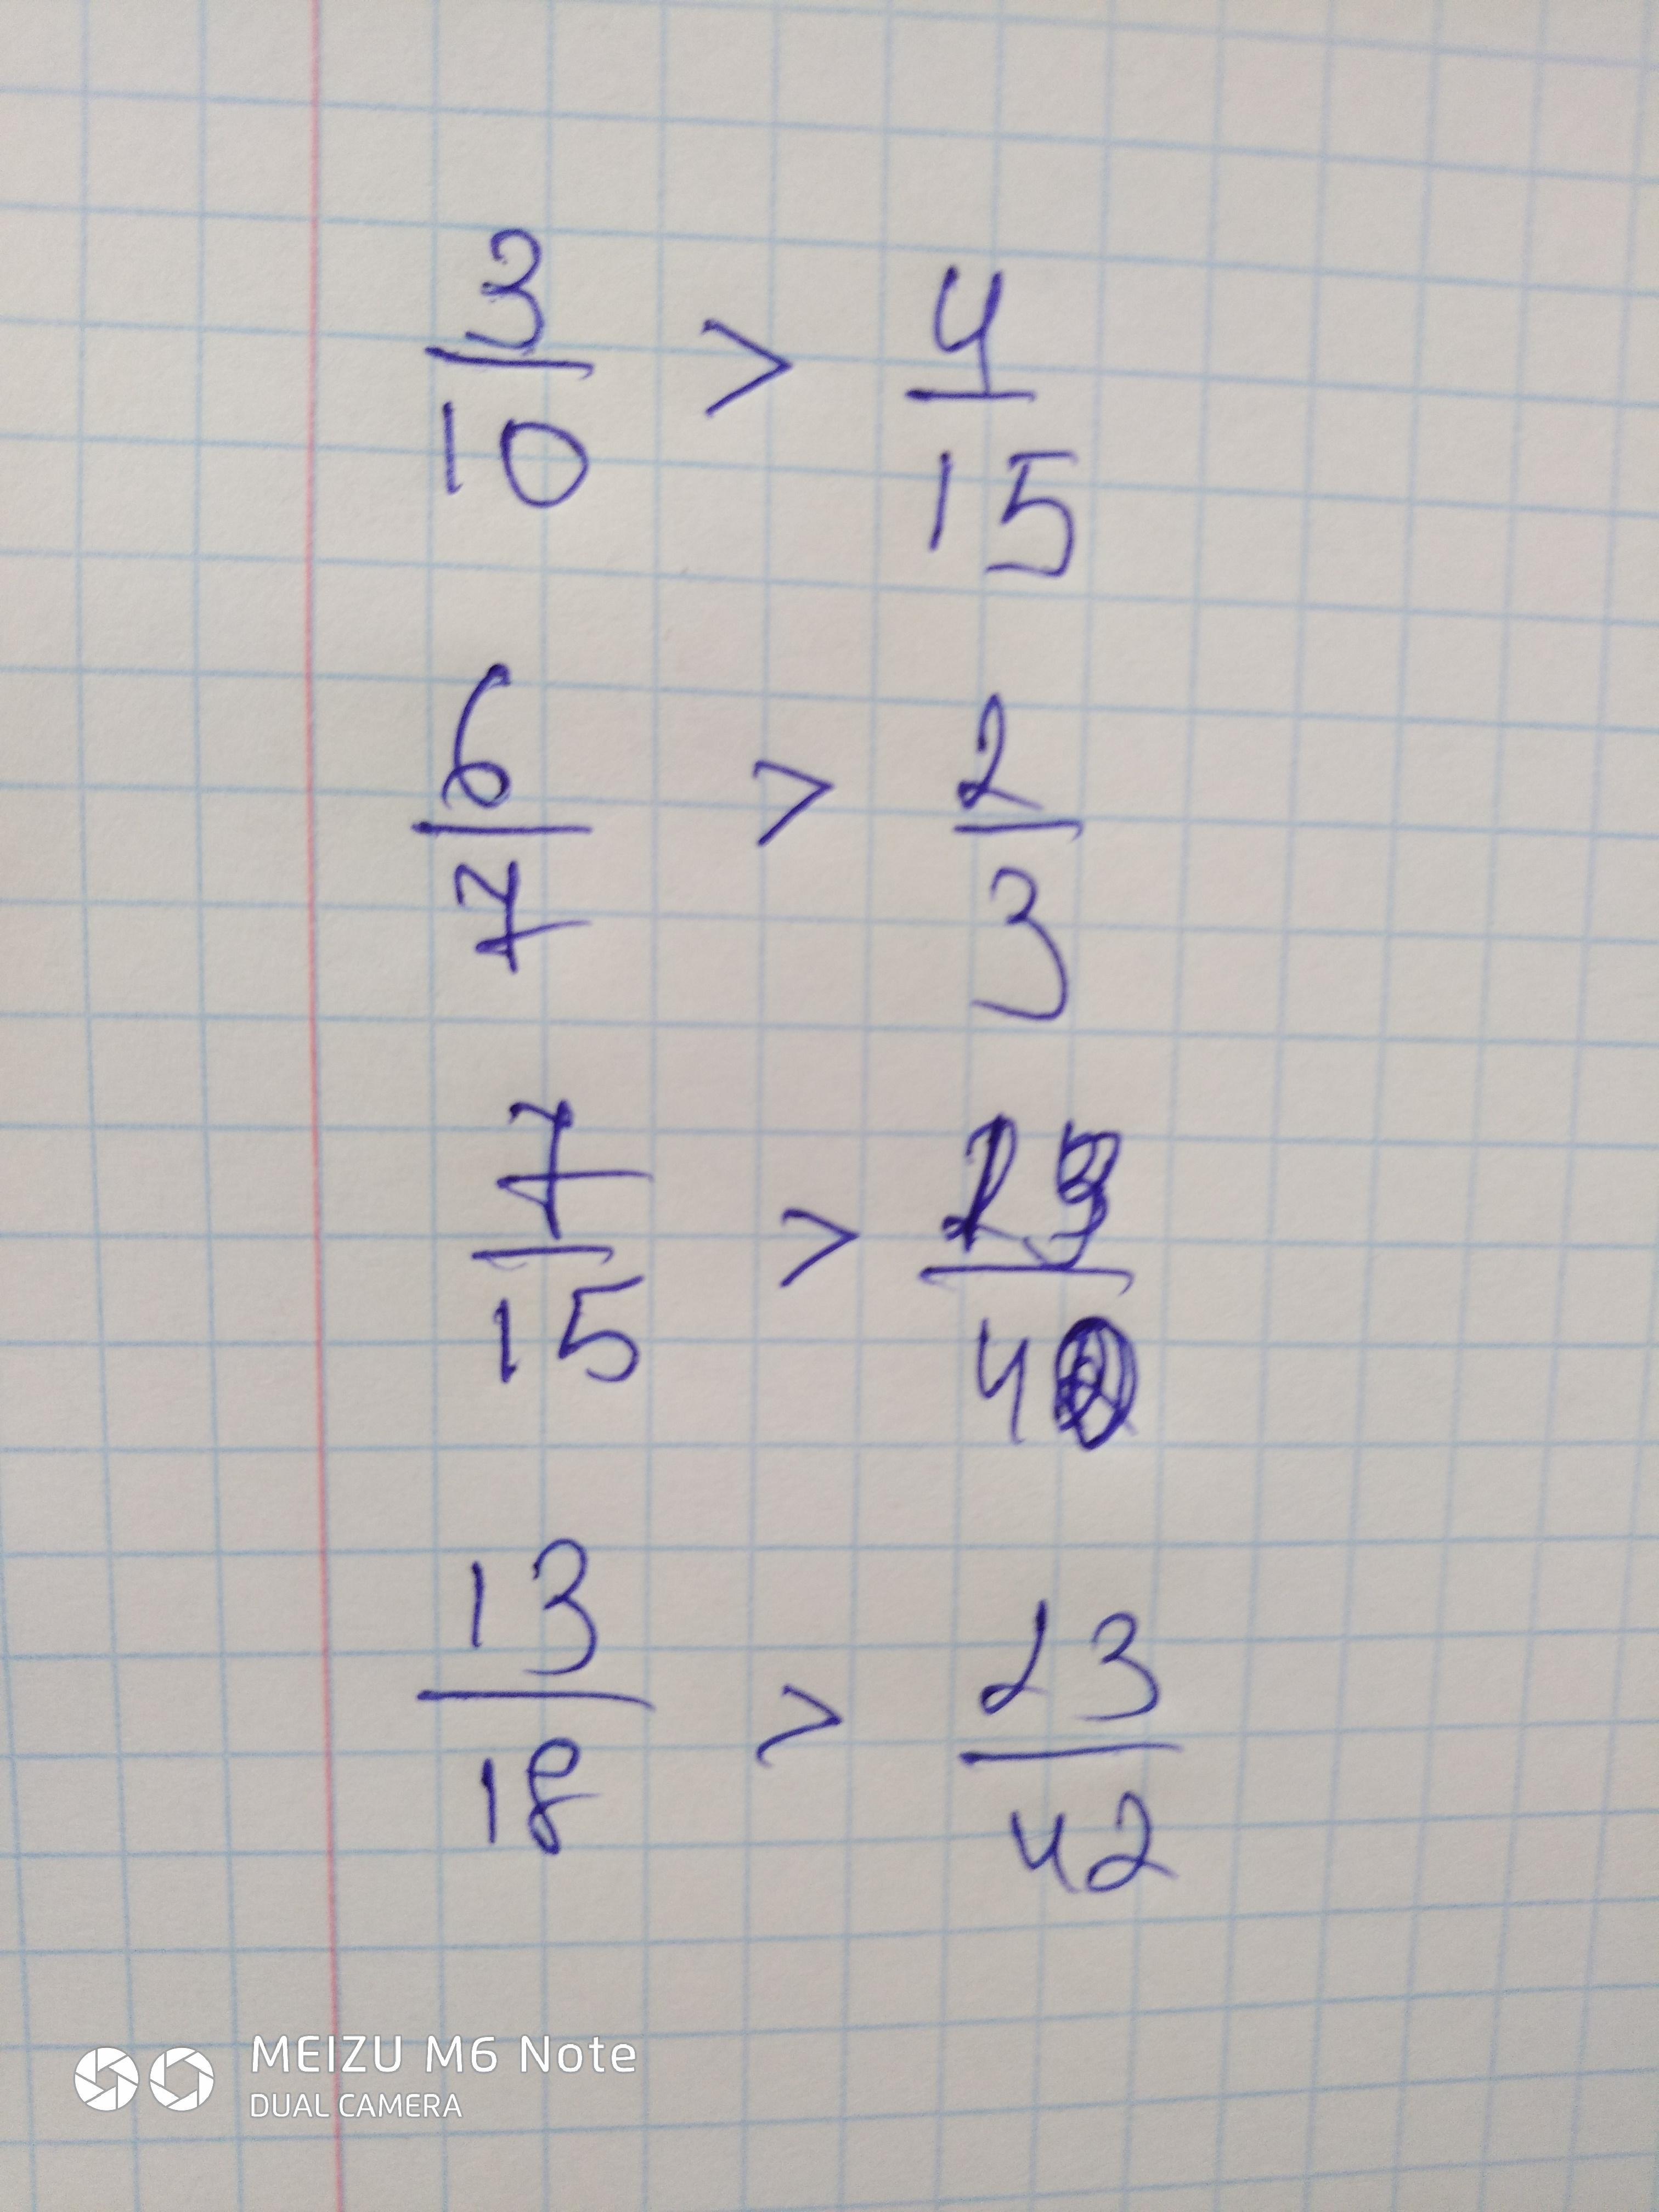 3/10 > 4/15
6/7 > 2/3
7/15 > 
13/18 > 23/42
MEIZU M6 Note
DUAL CAMERA